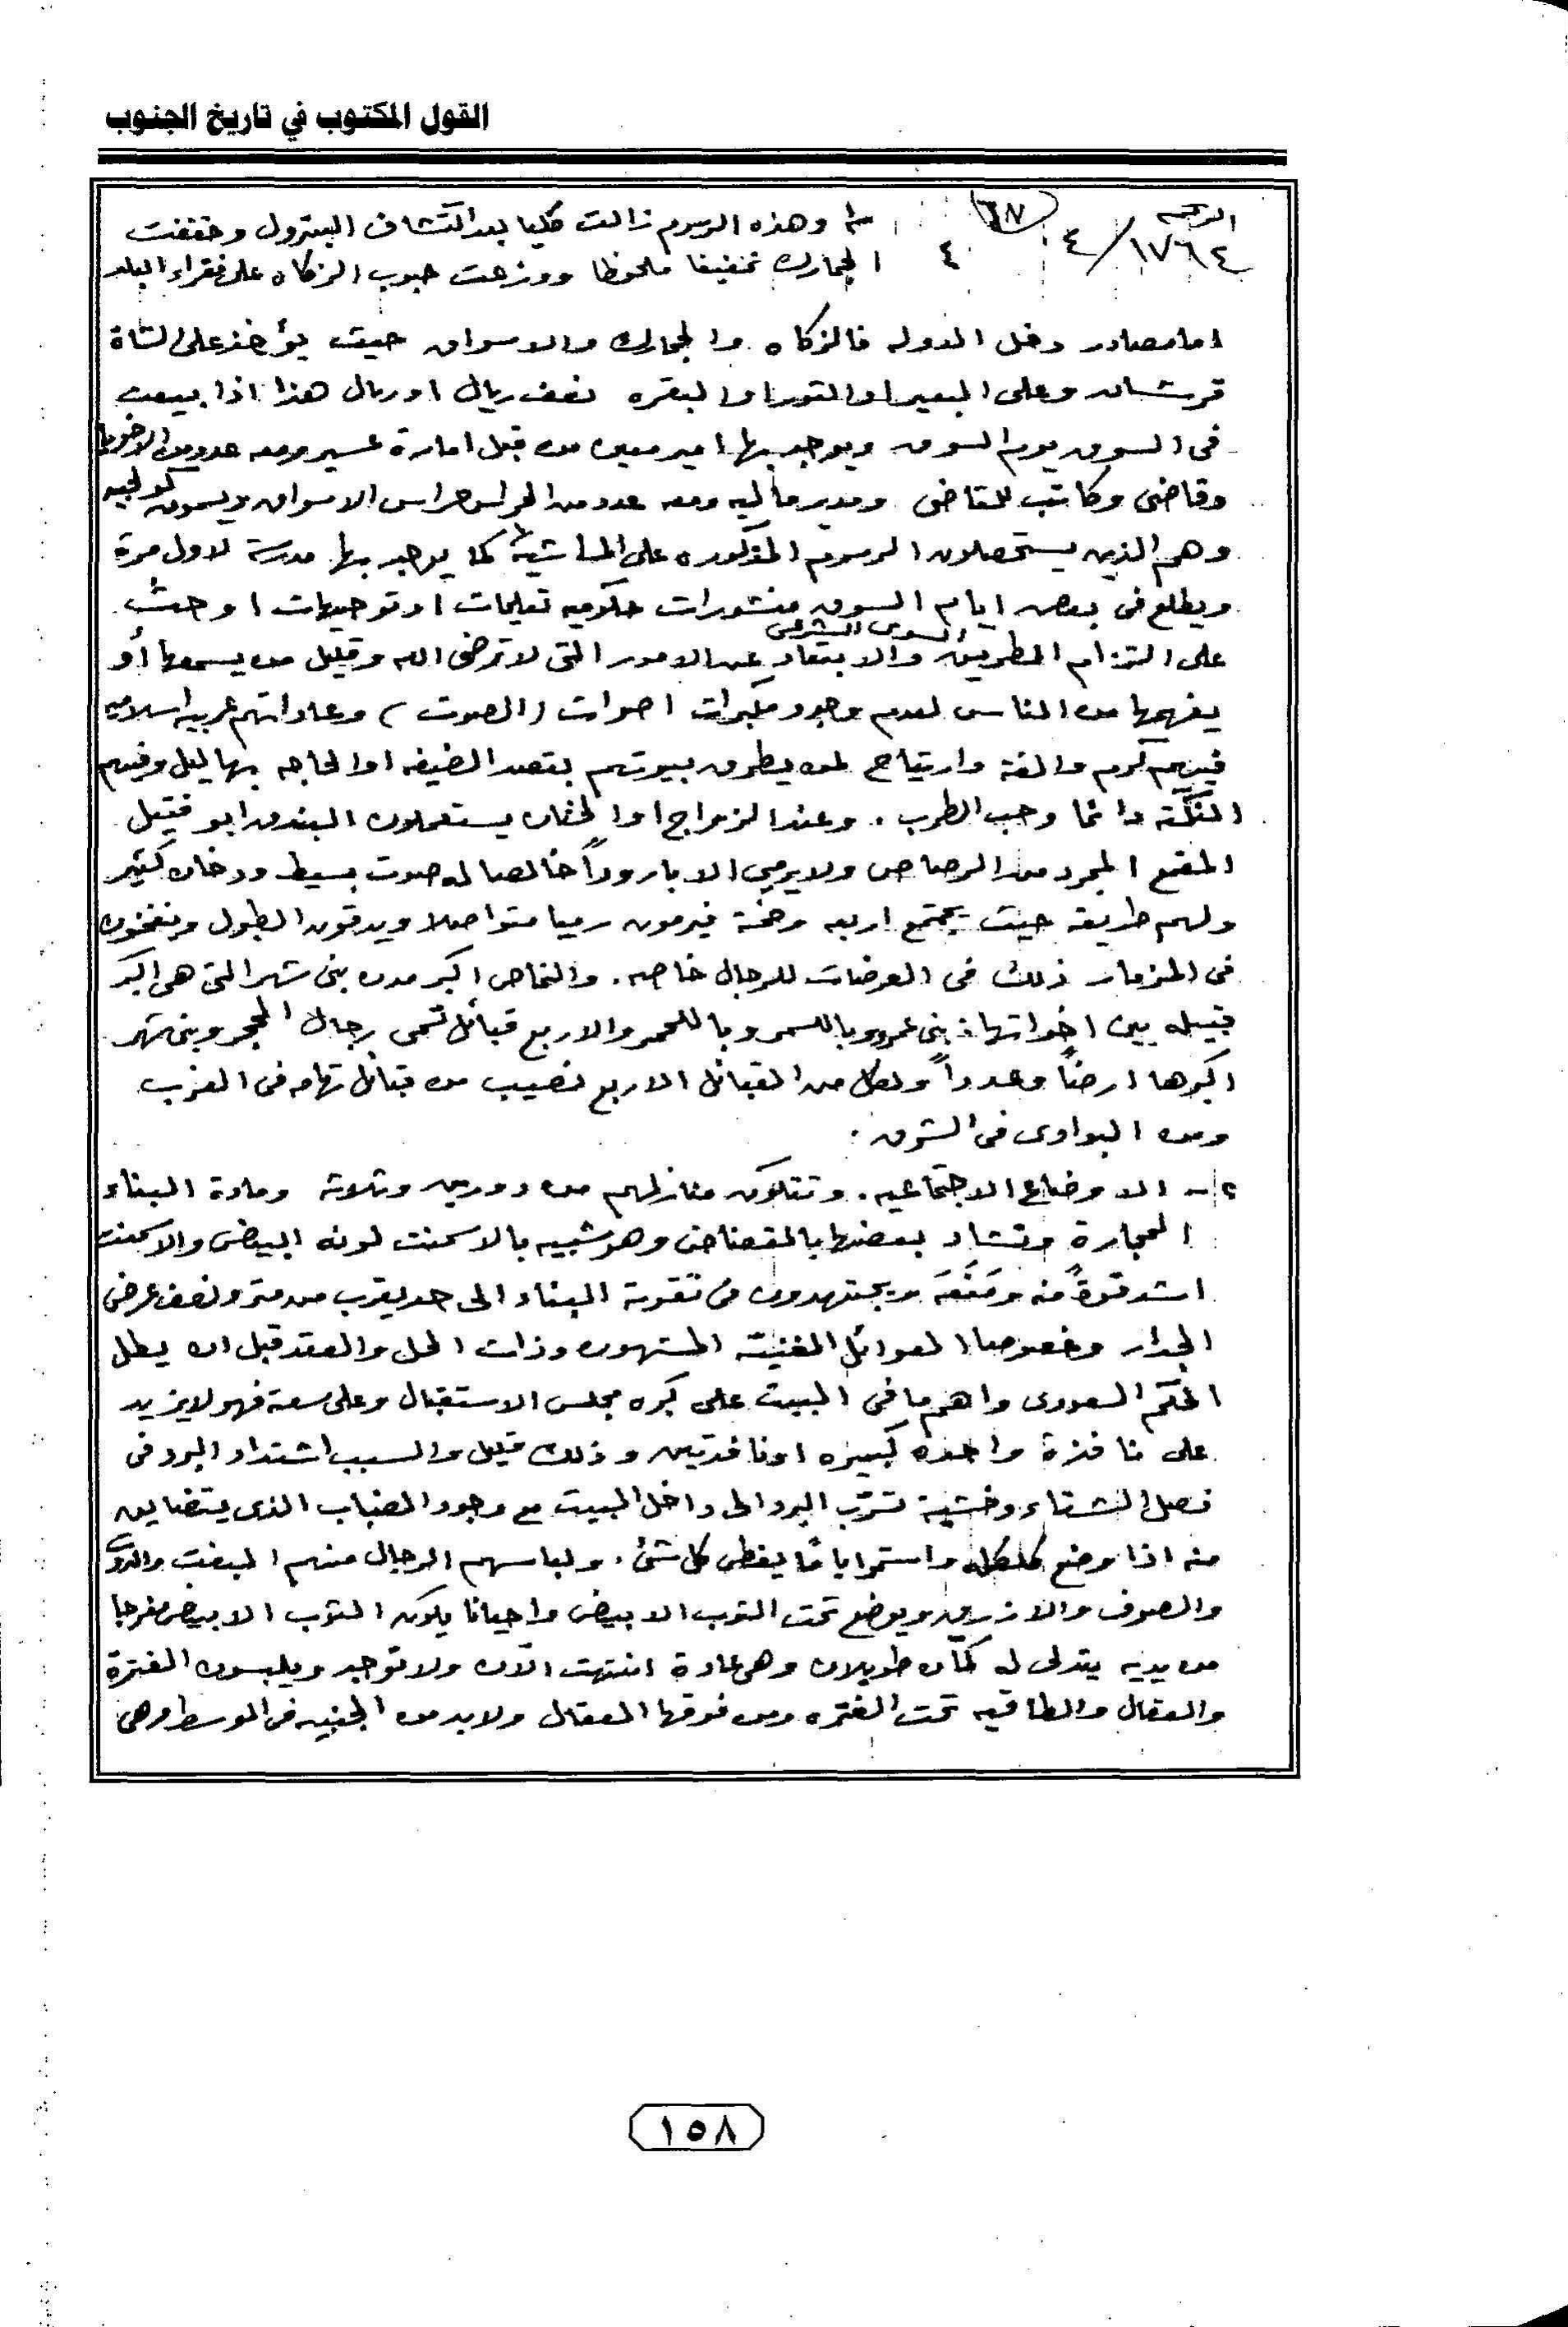 القول المكتوب في تاريخ الجنوب
الرقم
١٧٦٤/٤
٦٧
٤
وهذه الرسوم زالت كليا بعد اكتشاف البترول وخففت
الجمارك تخفيفا ملحوظا ووزعت حبوب الزكاه على فقراء البلد
اما مصادر دخل الدوله فالزكاه والجمارك والاسواق حيث يؤخذ على الشاة
قرشان وعلى البعير او الثور او البقره نصف ريال او ريال هذا اذا بيعت
فى السوق يوم السوق ويوجد بها امير معين من قبل امارة عسير ومعه عدد من الاخويا
وقاضى وكاتب للقاضى ومدير ماليه ومعه عدد من الحراس حراس الاسواق ويسمون
وهم الذين يستحصلون الرسوم المذكوره على الماشية كما يوجد بها مدرسة لاول مرة
ويطلع فى بعض ايام السوق منشورات حكوميه تعليمات او توجيهات او حث
على التزام الطريق السوى الشرعى والابتعاد عن الامور التى لا ترضى الله وقليل من يسمعها أو
يفهمها من الناس لعدم وجود مكبرات اصوات (الصوت) وعاداتهم عربيه اسلاميه
فيهم كرم والفة وارتياح لمن يطرق بيوتهم بقصد الضيفه او الحاجه بها ليل وفيهم
النكتة دائما وحب الطرب . وعند الزواج او الختان يستعملون البندق ابو فتيل
المقمع المجرد من الرصاص ولا يرمي الا باروداً خالصا له صوت بسيط ودخان كثير
ولهم طريقه حيث يجتمع اربعه وخمسة فيرمون رميا متواصلا ويدقون الطبول وينفخون
فى المزمار ذلك فى العرضات للرجال خاصه . والنماص اكبر مدن بنى شهر التى هى اكبر
قبيله بين اخواتها: بنى عمرو وباللسمر وباللحمر والاربع قبائل تسمى رجال الحجر وبنى شهر
اكبرها ارضاً وعدداً ولكل من القبائل الاربع نصيب من قبائل تهامه فى الغرب
ومن البوادى فى الشرق .
٢- الاوضاع الاجتماعيه . وتتكون منازلهم من دورين وثلاثه ومادة البناء
الحجارة وتشاد بعضها بالقضاض وهو شبيه بالاسمنت لونه ابيض والاسمنت
اشد قوةً منه ومَنَعَه ويجتهدون فى تقوية البناء الى حد يقرب من متر ونصف عرض
الجدار وخصوصا العوائل الغنية المشهوره وذات الحل والعقد قبل ان يطل
الحكم السعودى واهم ما فى البيت على كبره مجلس الاستقبال وعلى سعته فهو لا يزيد
على نافذة واحده كبيره او نافذتين وذلك قليل والسبب اشتداد البرد فى
فصل الشتاء وخشية تسرّب البرد الى داخل البيت مع وجود الضباب الذى يتضايق
منه اذا وضع كلكله واستمر اياماً يغطى كل شئ . ولباسهم الرجال منهم البفت والدوت
والصوف والازرق ويوضع تحت الثوب الابيض واحيانا يكون الثوب الابيض مفرجا
من يديه يتدلى له كمان طويلان وهى عادة انتهت الآن ولا توجد ويلبسون الغترة
والعقال والطاقيه تحت الغتره ومن فوقها العقال ولا بد من الجنبيه فى الوسط وهى
١٥٨